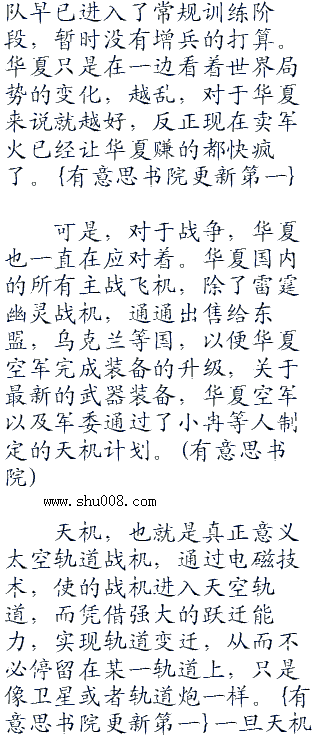 队早已进入了常规训练阶
段，暂时没有增兵的打算。
华夏只是在一边看着世界局
势的变化，越乱，对于华夏
来说就越好，反正现在卖军
火已经让华夏赚的都快疯
了。{有意思书院更新第一}
可是，对于战争，华夏
也一直在应对着。华夏国内
的所有主战飞机，除了雷霆
幽灵战机，通通出售给东
盟，乌克兰等国，以便华夏
空军完成装备的升级，关于
最新的武器装备，华夏空军
以及军委通过了小冉等人制
定的天机计划。(有意思书
院)
www.shu008.com
天机，也就是真正意义
太空轨道战机，通过电磁技
术，使的战机进入天空轨
道，而凭借强大的跃迁能
力，实现轨道变迁，从而不
必停留在某一轨道上，只是
像卫星或者轨道炮一样。{有
意思书院更新第一}一旦天机